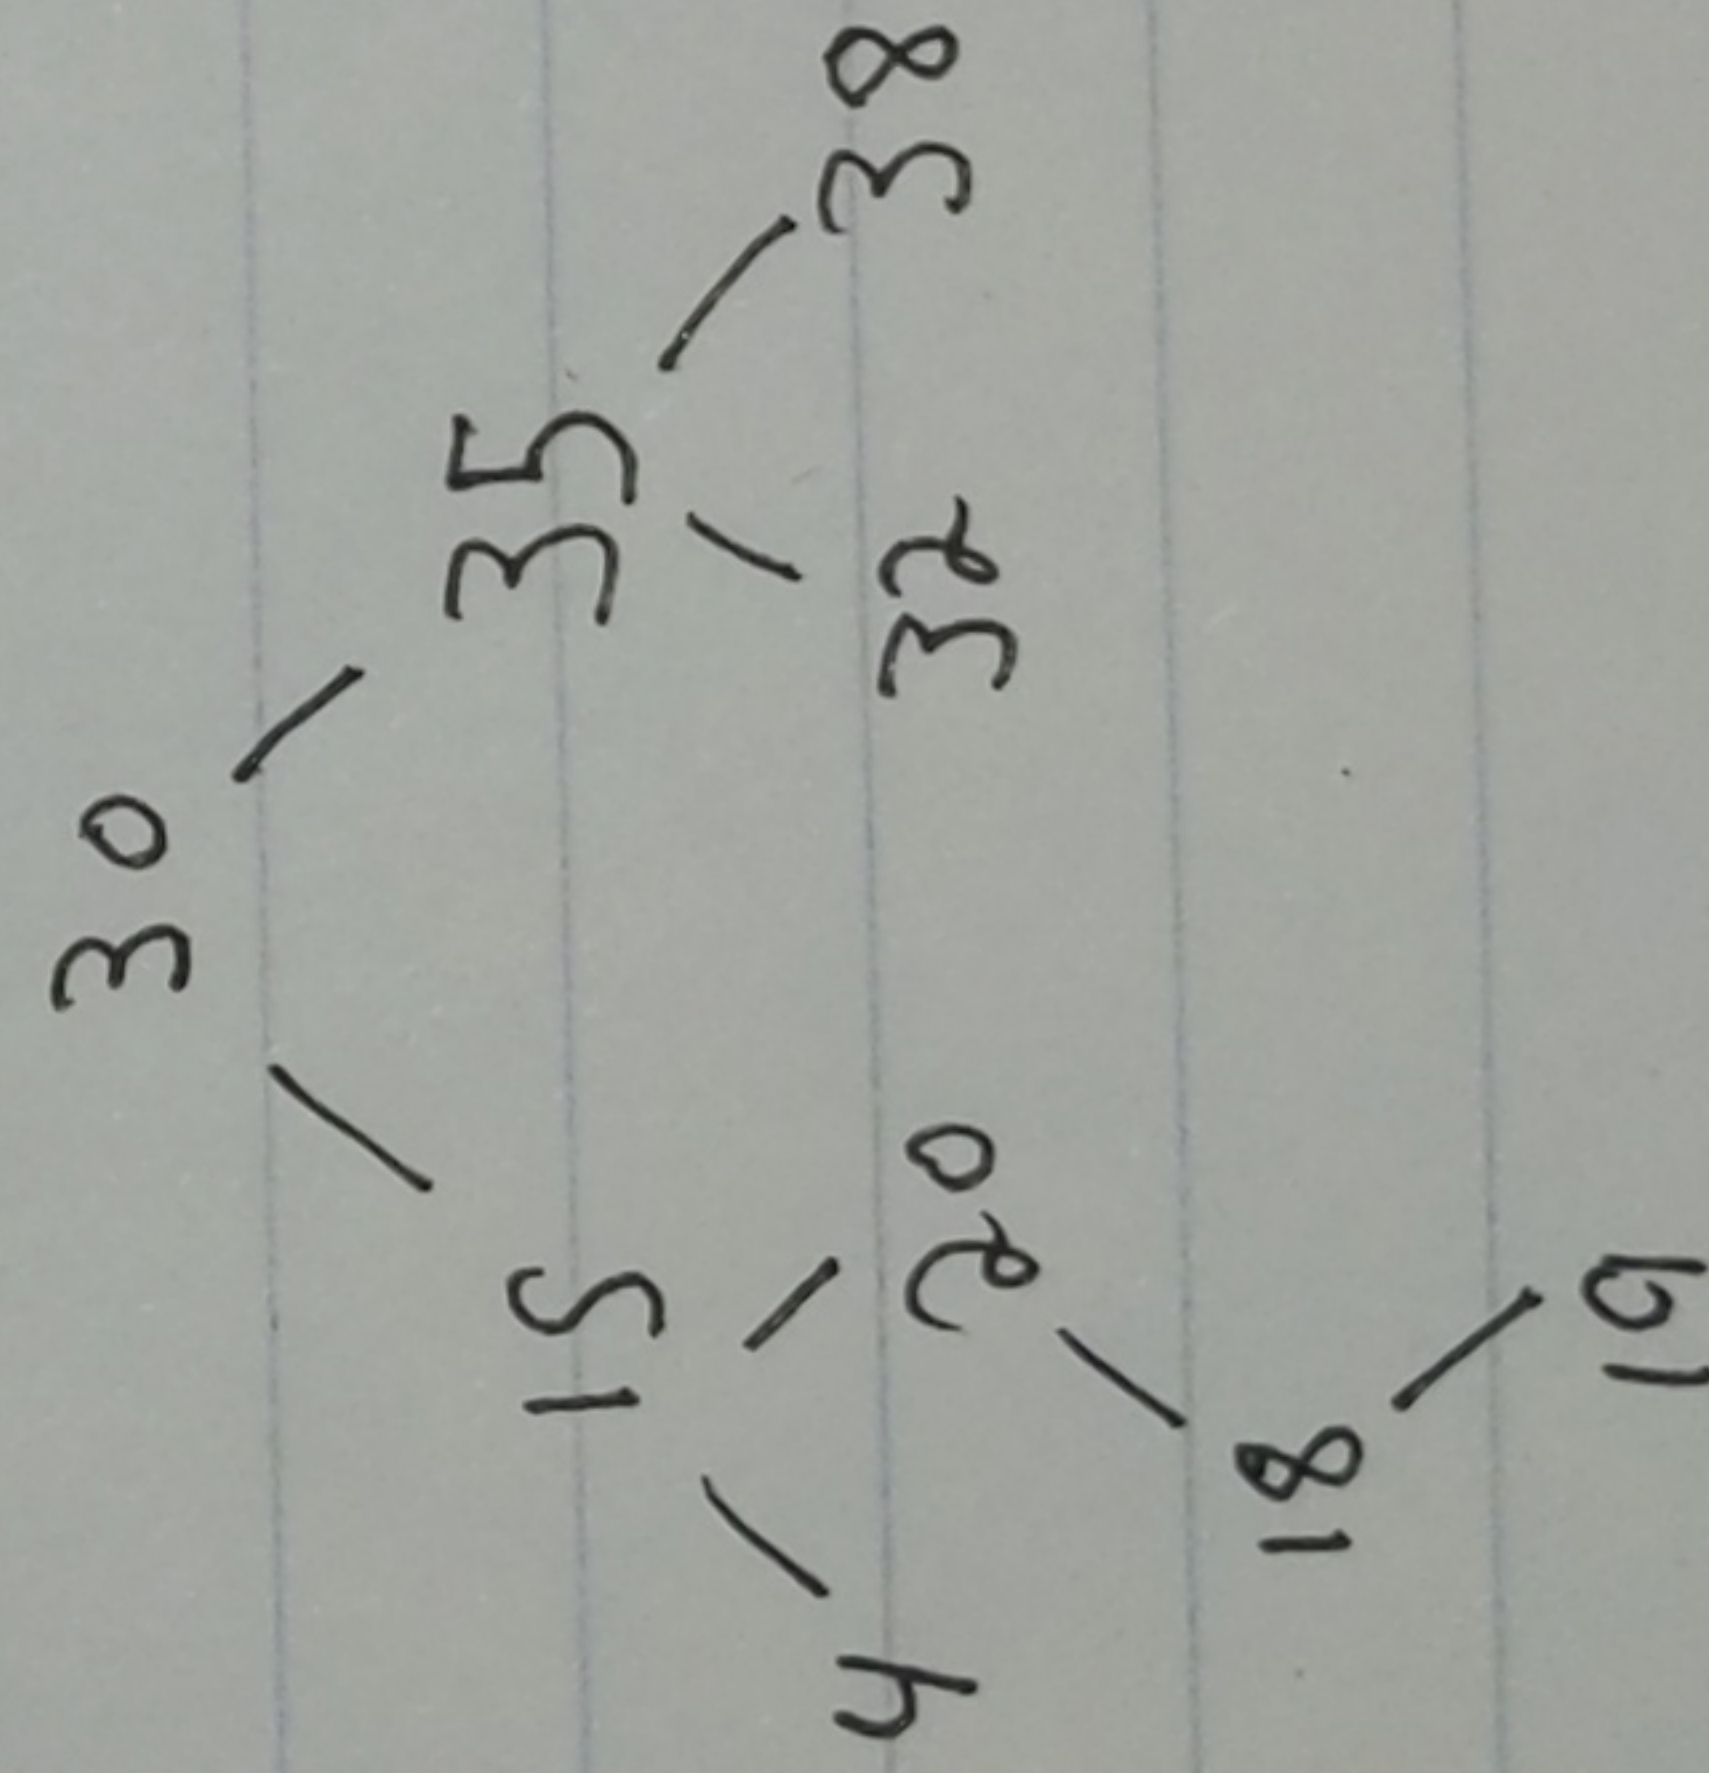 30
15 35
4 20 32 38
18
19